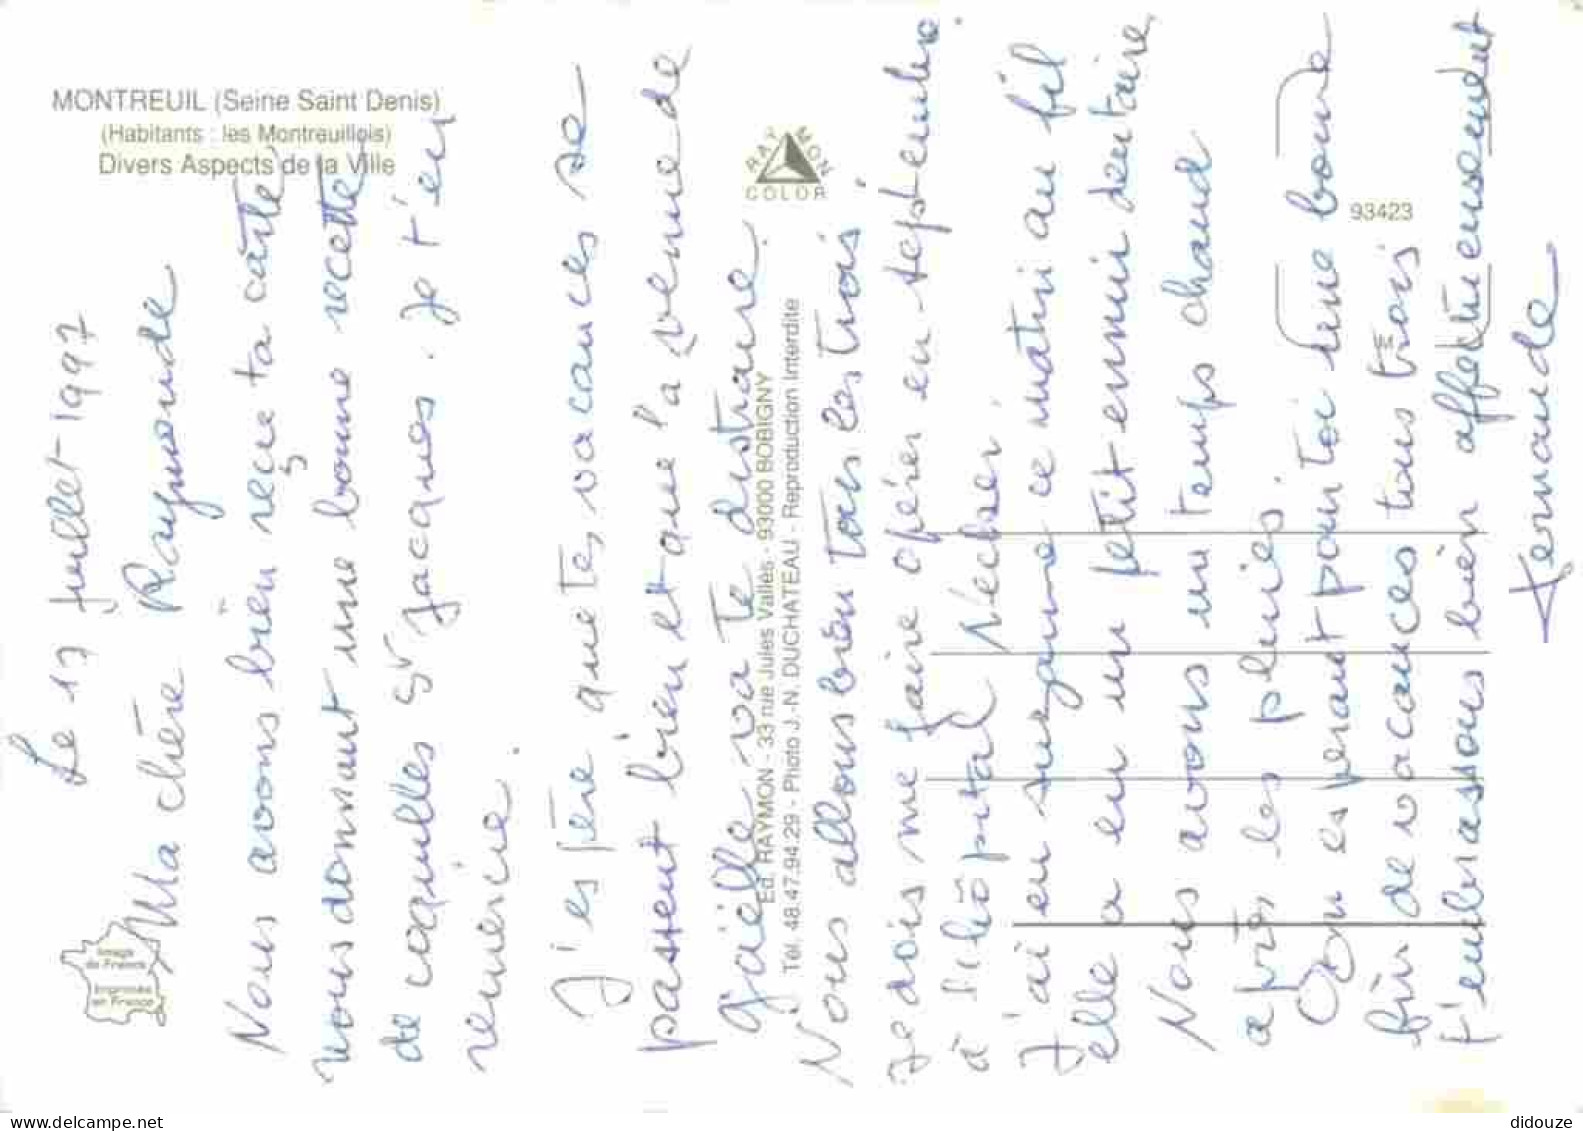 MONTREUIL (Seine Saint Denis)
(Habitants : les Montreuillois)
Divers Aspects de la Ville
RAYMON
COLOR
93423
Image
de France
Imprimée
en France
Ed. RAYMON - 33 rue Jules Vallès - 93000 BOBIGNY
Tél. 48.47.94.29 - Photo J.-N. DUCHATEAU - Reproduction Interdite
Le 17 juillet 1997
Ma chère Raymonde
Nous avons bien reçue ta carte
nous donnant une bonne recette
de coquilles St Jacques. Je t'en
remercie.
J'espère que tes vacances se
passent bien et que la venue de
Gaëlle va te distraire.
Nous allons bien tous les trois.
Je dois me faire opérer en septembre.
à l'hôpital Necker.
J'ai eu suzanne ce matin au fil
elle a eu un petit ennui dentaire,
Nous avons une temps chaud
après les pluies.
En espérant pour toi une bonne
fin de vacances tous trois
t'embrassons bien affectueusement
Fernande
M
didouze